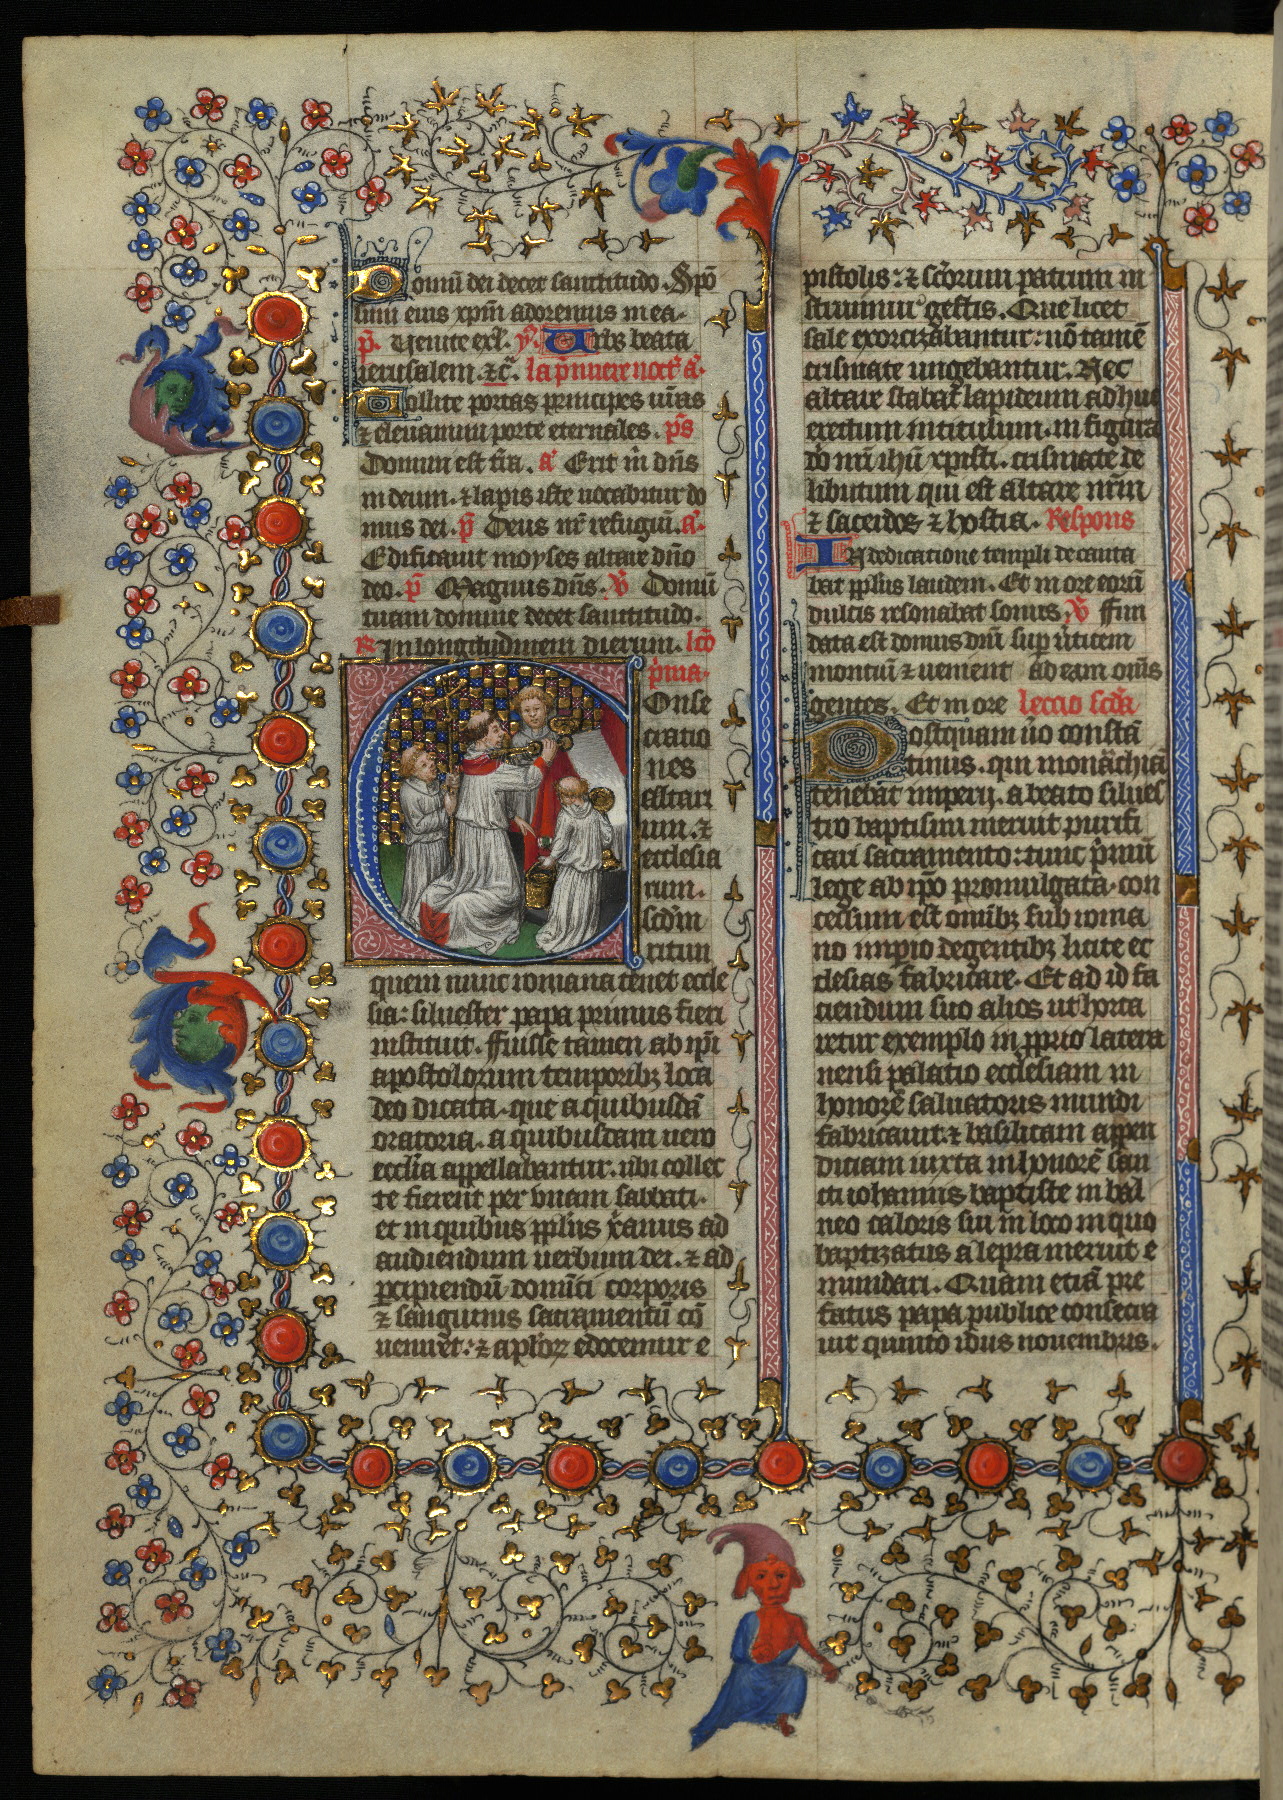 Domū dei decet sanctitudo. Spō
sum eius xpm̄ adoremus in ea.
p̄. Venite exl. ỹ. Urbs beata
ierusalem. ⁊c̄. In pͥmere noctͬ. aͣ.
Tollite portas principes vr̄as
⁊ eleuamini porte eternales. ps̄
Domini est tr̄a. aͣ Erit m̄ dn̄s
in deum. ⁊ lapis iste uocabitur do
mus dei. p̄ Deus nr̄ refugiū. aͣ.
Edificauit moyses altare dn̄o
deo. p̄ Magnus dn̄s. V̄ Domū
tuam domine decet sanctitudo.
R̄ In longitudinem dierum. lcō
pͥma.
Conse
cratio
nes
altari
um. ⁊
ecclesia
rum.
scd̄m
ritum
quem nunc romana tenet eccle
sia: siluester papa primus fieri
instituit. Fuisse tamen ab ip̄i
apostolorum temporibꝫ loca
deo dicata. que a quibusdā
oratoria. a quibusdam uero
eccl̄ia appellabantur. ubi collec
te fierent per unam sabbati.
et in quibus ppl̄us xr̄anus ad
audiendum uerbum dei. ⁊ ad
ꝑcipiendū domīci corporis
⁊ sanguinis sacramentū cō
ueniret: ⁊ aplo̅ꝝ edocemur e
pistolis: ⁊ sc̄orum patrum in
struimur gestis. Que licet
sale exorcizabantur: nō tamē
crismate ungebantur. Nec
altare stabat lapideum adhuc
erectum in titulum. in figura
dō nr̄i ihū xpisti. crismate de
libutum qui est altare nr̄m
⁊ sacerdos ⁊ hostia. Respons
In dedicatione templi decanta
bat ppl̄us laudem. Et in ore eorū
dulcis resonabat sonus. V̄ Fun
data est domus dn̄i sup̄ uticem
montiū ⁊ uenient ad eam om̄s
gentes. Et in ore lectio scd̄a
Postquam uō constā
tinus. qui monarchiā
tenebat imperij. a beato silues
tro baptismi meruit purifi
cari sacramento: tunc pͥmū
lege ab ip̄o promulgata. con
cessum est om̄ibꝫ sub roma
no imp̄io degentibꝫ licite ec
clesias fabricare. Et ad id fa
ciendum suo alios ut horta
retur exemplo in ꝓprio latera
nensi palatio ecclesiam in
honorē saluatoris mundi
fabricauit. ⁊ basilicam appen
diciam iuxta in honorē san
cti iohannis baptiste in bal
neo caloris sui in loco in quo
baptizatus a lepra meruit e
mundari. Quam etiā pre
fatus papa publice consecra
uit quinto idus nouembris.